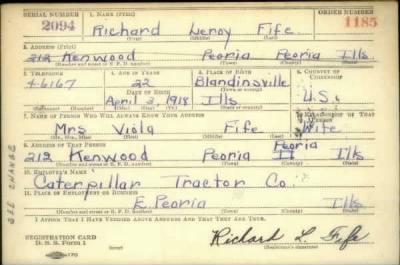 SERIAL NUMBER 1. NAME (Print) ORDER NUMBER
2094 Richard Leroy Fife 1185
(First) (Middle) (Last)
2. ADDRESS (Print)
212 Kenwood Peoria Peoria Ills
(Number and street or R. F. D. number) (Town) (County) (State)
3. TELEPHONE 4. AGE IN YEARS 5. PLACE OF BIRTH 6. COUNTRY OF CITIZENSHIP
4-6167 22 Blandinsville
DATE OF BIRTH (Town or county)
April 3 1918 Ills U.S.
(Mo.) (Day) (Yr.) (State or country)
7. NAME OF PERSON WHO WILL ALWAYS KNOW YOUR ADDRESS 8. RELATIONSHIP OF THAT PERSON
Mrs Viola Fife Wife
(Mr., Mrs., Miss) (First) (Middle) (Last)
9. ADDRESS OF THAT PERSON
Peoria
212 Kenwood Peoria Ills
(Number and street or R. F. D. number) (Town) (County) (State)
10. EMPLOYER'S NAME
Caterpillar Tractor Co.
11. PLACE OF EMPLOYMENT OR BUSINESS
E. Peoria Ills
(Number and street or R. F. D. number) (Town) (County) (State)
I AFFIRM THAT I HAVE VERIFIED ABOVE ANSWERS AND THAT THEY ARE TRUE.
REGISTRATION CARD
D. S. S. Form 1 Richard L. Fife
(Registrant's signature)
SEE CHANGE